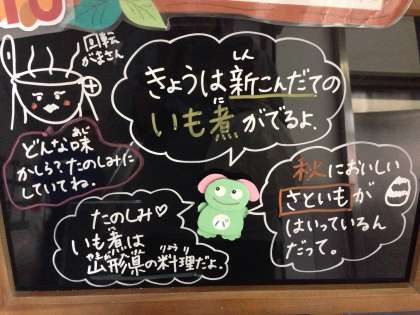 回転
がまさん
きょうは新こんだての
しん
いも煮がでるよ.
に
どんな味
あじ
かしら?たのしみに
していてね。
秋においしい
さといもが
はいっているん
だって。
たのしみ♡
いも煮は
に
山形県の料理だよ.
やまがたけん
りょうり
バ